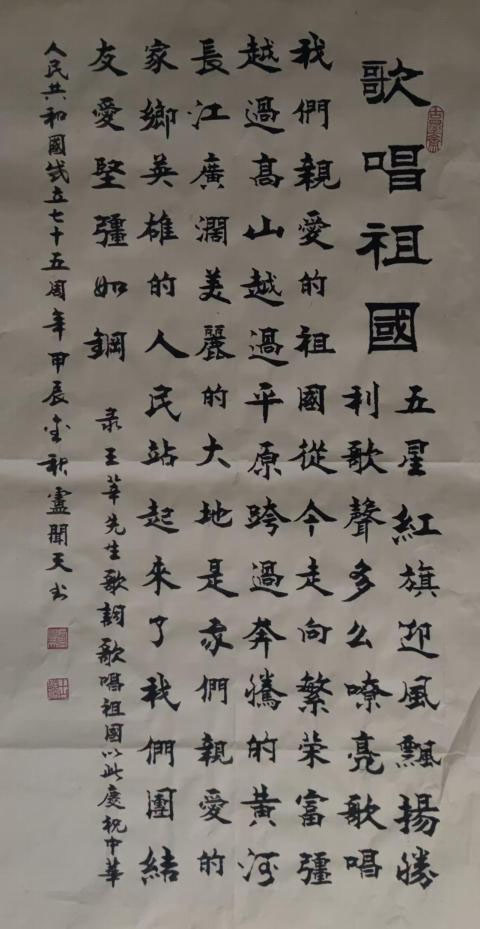 歌唱祖國
五星紅旗迎風飄揚勝
利歌聲多么嘹亮歌唱
我們親愛的祖國從今走向繁荣富彊
越過高山越過平原跨過奔騰的黄河
長江廣濶美麗的大地是我們親愛的
家鄉英雄的人民站起來了我們團結
友愛堅彊如鋼
录王莘先生歌詞歌唱祖國以此慶祝中華
人民共和國成立七十五周年甲辰金秋盧聞天书